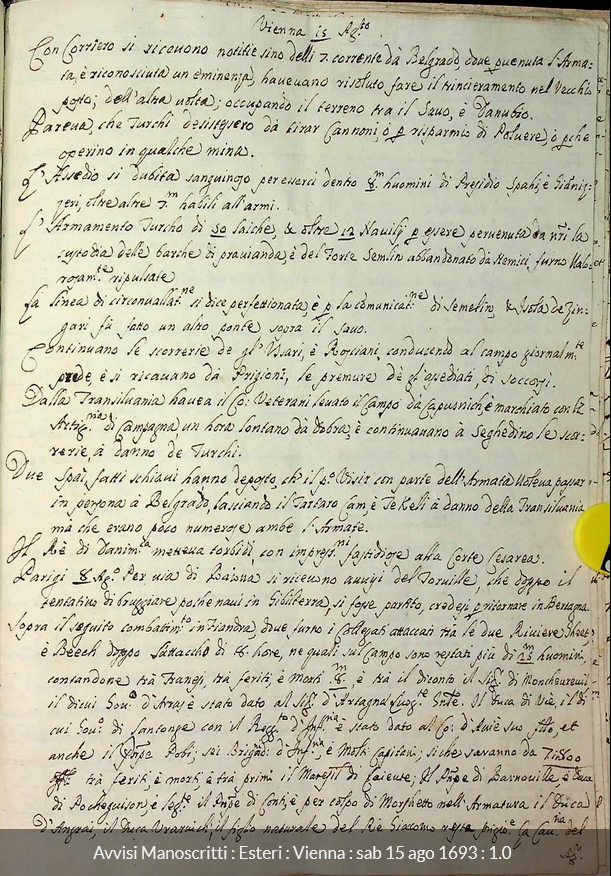 Vienna 15 Ag.to
Con Corriero si ricevono notitie sino delli 7. corrente da Belgrado, dove pvenuta l'Arma-
ta, è riconosciuta un eminenza, havevano risoluto fare il trincieramento nel Vecchio
posto; dell'altra volta; occupando il terreno tra il Savo, è Danubio.
Pareva, che Turchi desistessero da tirar Cannoni, ò p risparmio di Poluere, ò pche
operino in qualche mina.
L'Assedio si dubita sanguinoso per esserci dentro 8.m huomini di Presidio Spahi, è Gianiz-
zeri, oltre altre 7.m habili all'armi.
L'Armamento Turcho di 50 saiche, & oltre 12 Navilij p essere pervenuta da nri la
custodia delle barche di provianda, è del Forte Semlin abbandonato da Nemici, furno
ripulsate
La linea di circonvallat.ne si dice perfettionata, è p la comunicat.ne di Semelin, & Isola de Zin-
gari fù fatto un altro ponte sopra il Savo.
Continuano le scorrerie de gl'Usari, è Rasciani, conducendo al campo giornalm.te
prede, è si ricavano da Prigioni, le premure de gl'assediati di soccorsi.
Dalla Transilvania havea il Co: Veterani levato il Campo da è marchiato con
Artig.ria di Campagna un hora lontano da Dobra, è continuavano à Seghedino le scor-
rerie à danno de Turchi.
Due Spaì, fatti schiavi hanno deposto, ch'il p.o Visir con parte dell'Armata voleva passar
in persona à Belgrado, lasciando il Tartaro Cam, è Tekeli à danno della Transilvania
mà che erano poco numerose ambe l'Armate.
Il Rè di Danim.ca metteva torbidi, con fastidiose alla Corte Cesarea.
Parigi 8 Ag.o Per via di Baiona si ricevono avvisi del Torville, che doppo il
tentativo di bruggiare poche navi in Gibilterra, si fosse partito, credesi p ritornare in Bertagna
Sopra il seguito combattim.to in Fiandra dove furno i Collegati attaccati trà le due Riviere Gheet
è Beech doppo l'attaccho di 8. hore, ne quali sul campo sono restati più di 15.m huomini,
contandone trà Franzi, trà feriti è Morti 8.m, è trà il di conto il Sig.r di Moncheureuil
il di cui Gov.o d'Aras è stato dato al Sig.r d'Artagnan Luog.te Gnte. Il Duca di Usè, il di
cui Gov.o di Santonge con il Regg.to d'Inf.ria è stato dato al Co: d'Ausè suo fllo, et
anche il Pnpe Pobli; sei Brigad.i d'Inf.ria, è Molti Capitani; siche saranno da
trà feriti, è morti, è trà primi il Il Pnpe di è Duca
di è leg.te il Pnpe di Conti, è per colpo di Moschetto nell'Armatura il Duca
il Duca il figlo naturale del Rè Giacomo resta prigio.e La Cau.ria del
Avvisi Manoscritti : Esteri : Vienna : sab 15 ago 1693 : 1.0